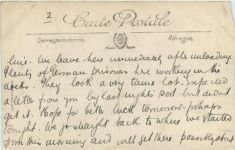 2
Carte Postale
Correspondance
Adresse
We leave here immediately after unloading
Plenty of German prisoners here working in the
docks. They look a very tame lot. Expected
a letter from you by last nights post but didn't
get it. Hope for better luck tomorrow - perhaps
tonight. We go straight back to where we started
from this morning and will get there possibly about